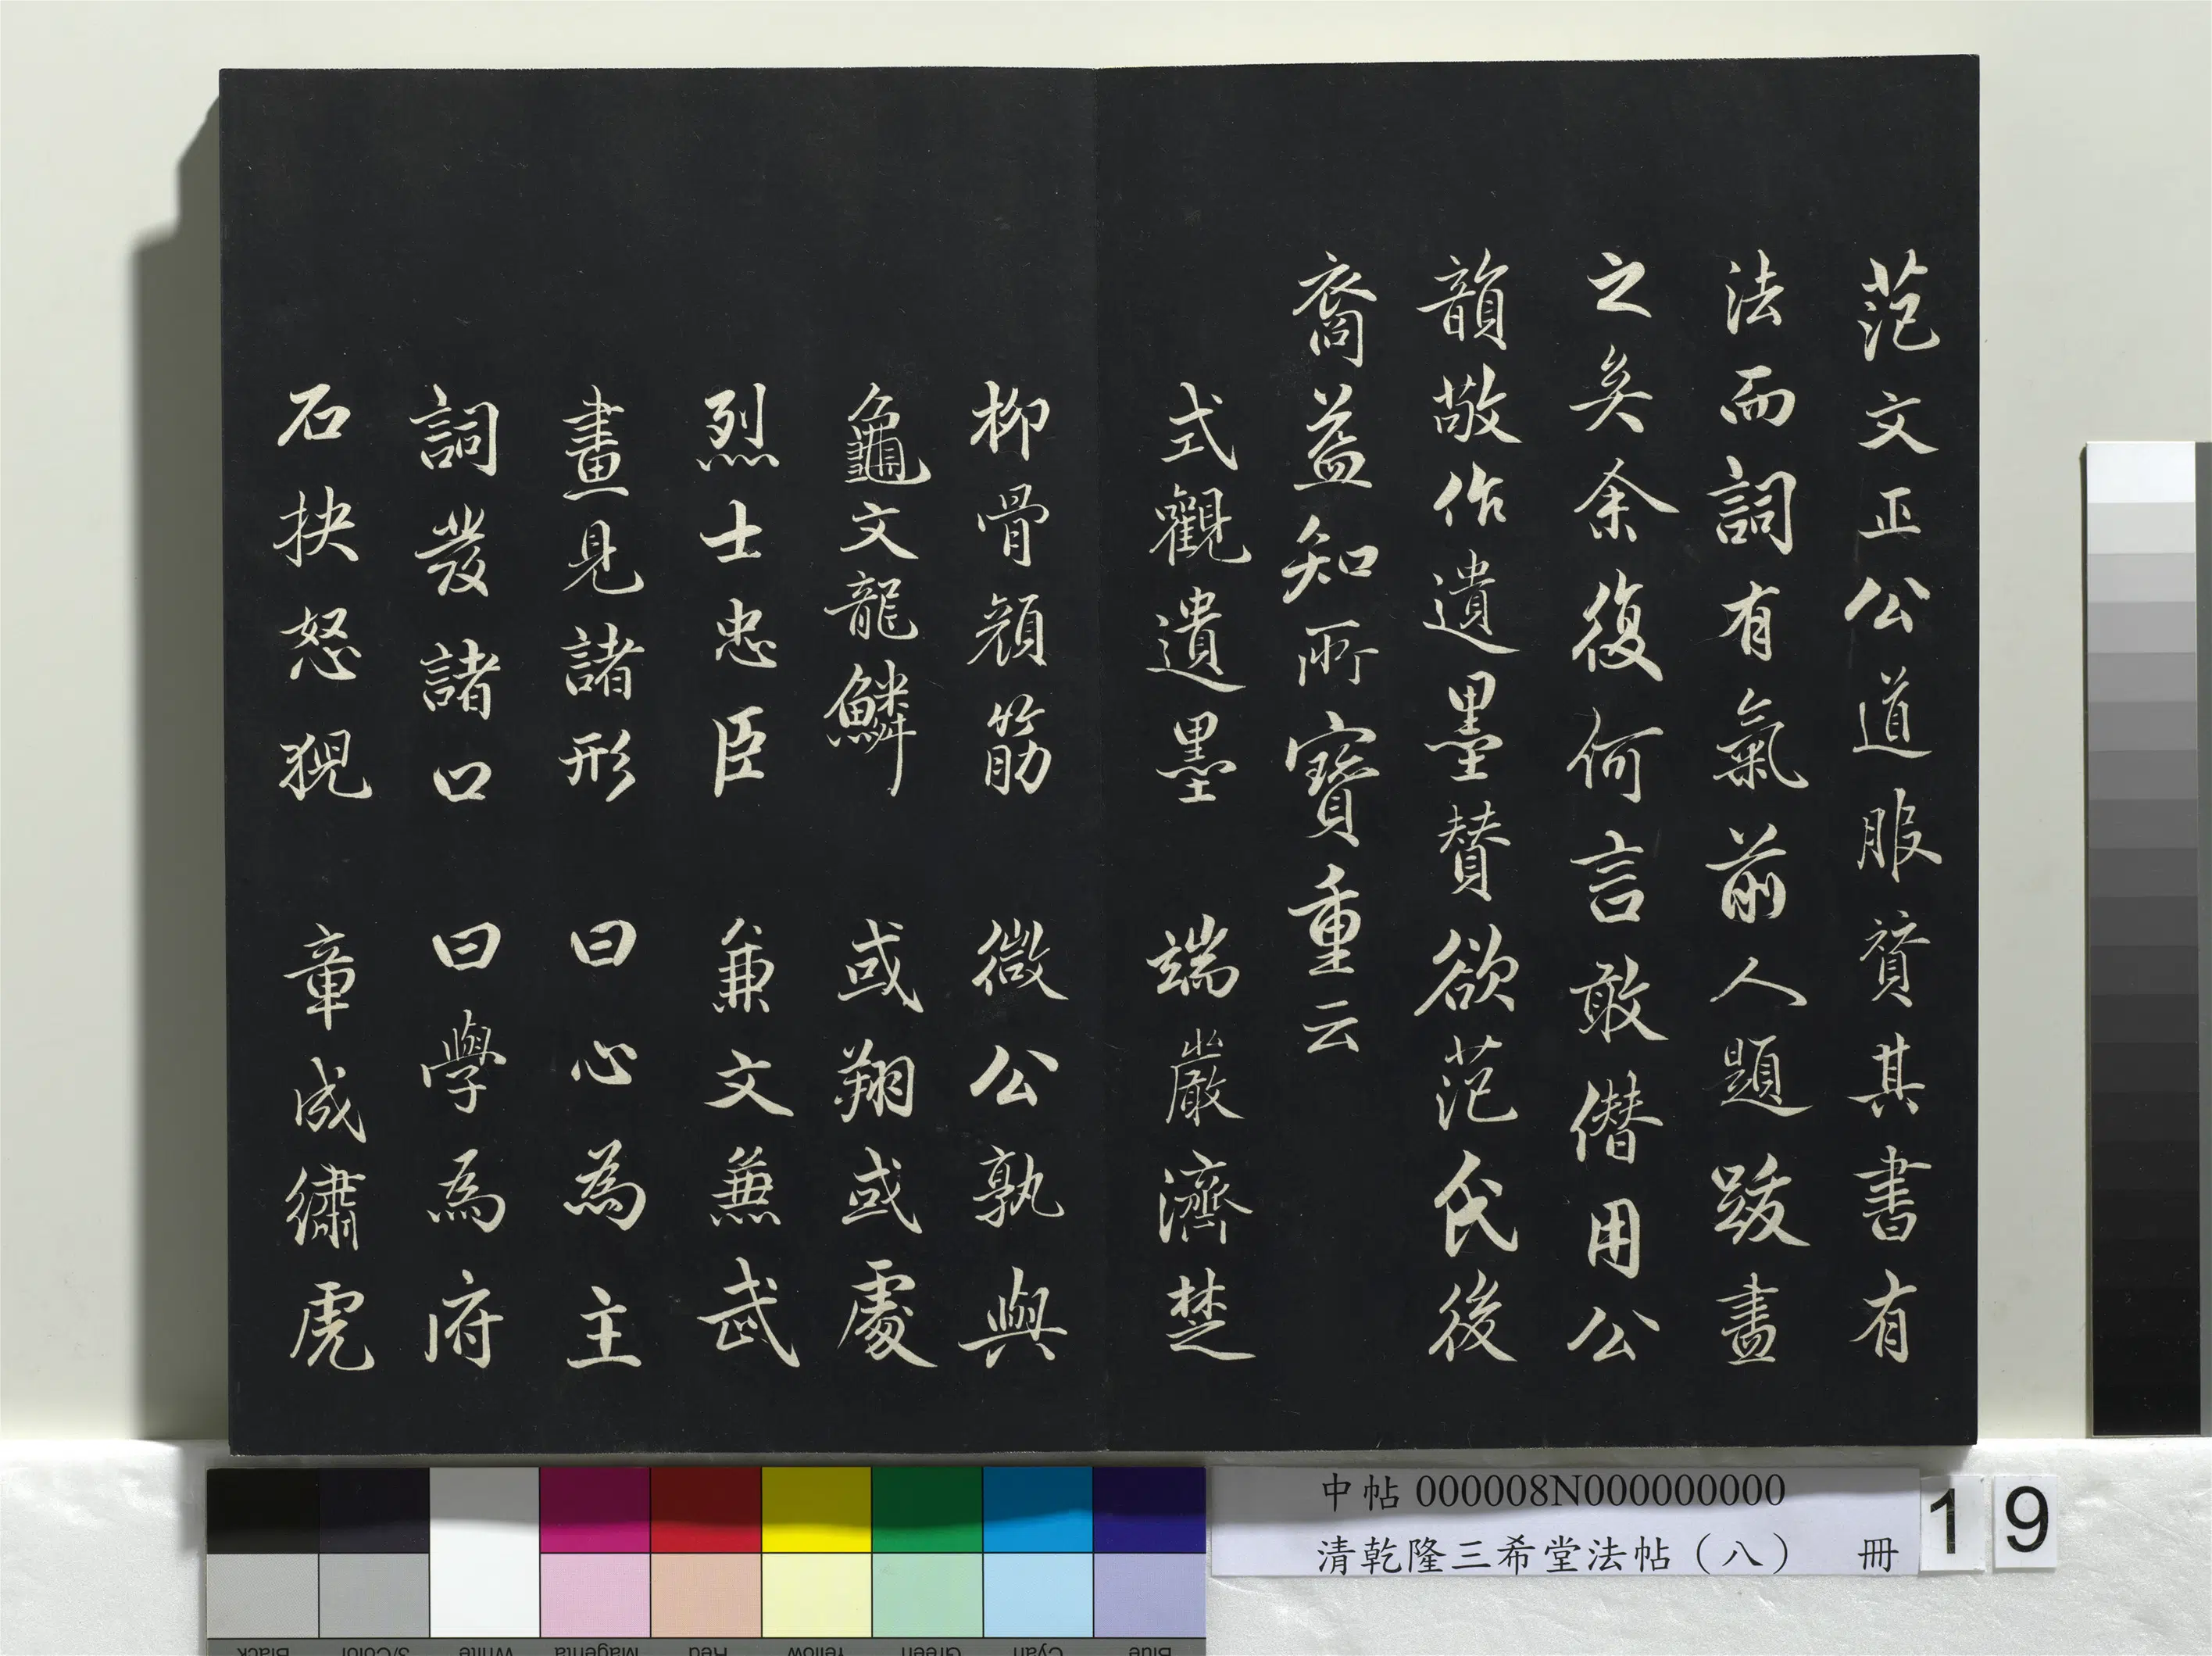 范文正公道服贊其書有
法而詞有氣前人題跋盡
之矣余復何言敢僣用公
韻敬作遺墨贊欲范氏後
裔益知所寶重云
式觀遺墨 端巖濟楚
柳骨顔筋 微公孰與
龜文龍鱗 或翔或處
烈士忠臣 兼文兼武
畫見諸形 曰心為主
詞發諸口 曰學為府
石抉怒猊 章成繡虎
中帖 000008N000000000
清乾隆三希堂法帖（八） 冊
1 9
Black 3/Color White Magenta Red Yellow Green Cyan Blue